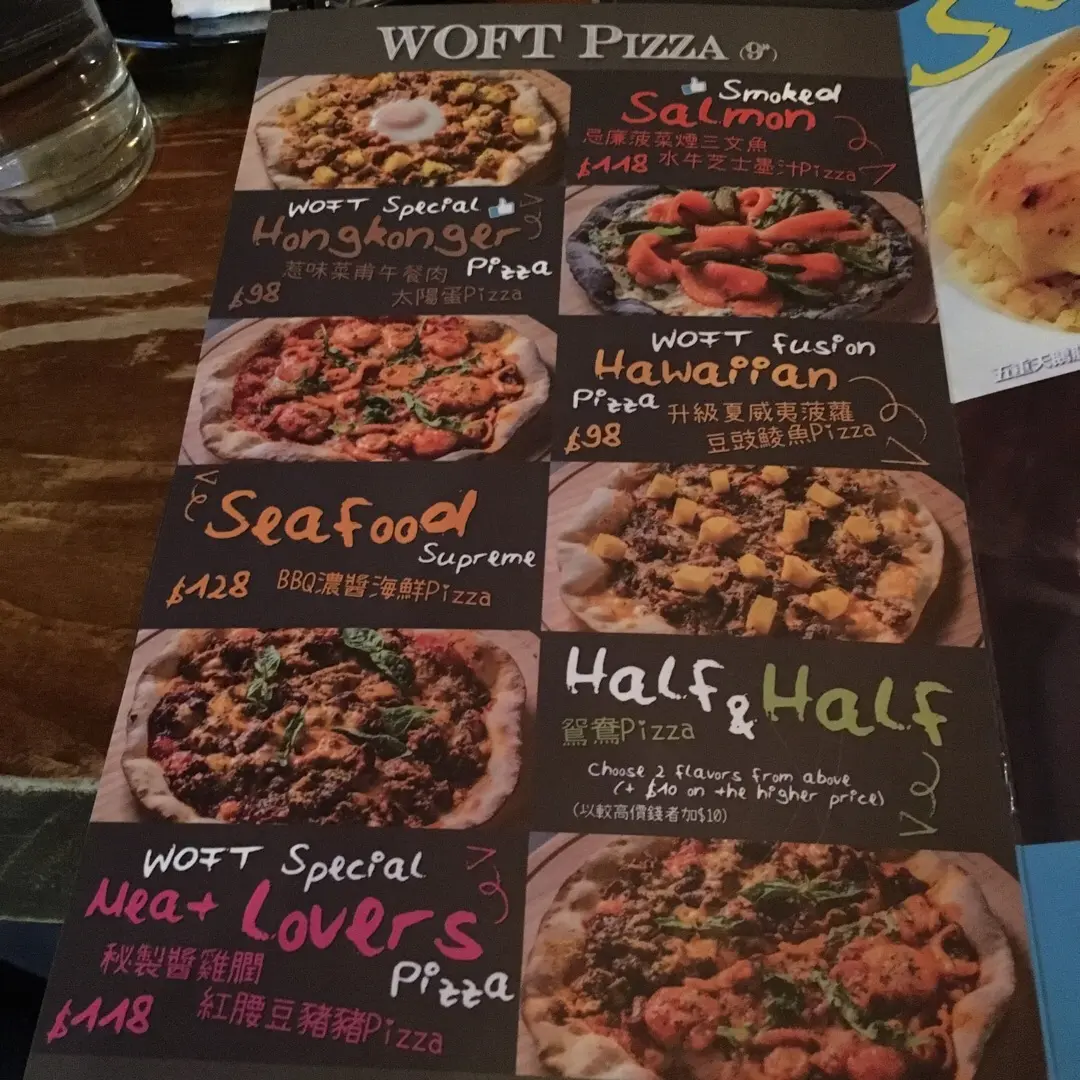 WOFT PIZZA (9")
Smoked
Salmon
忌廉菠菜煙三文魚
$118 水牛芝士墨汁Pizza
WOFT Special
Hongkonger
惹味菜甫午餐肉 Pizza
$98 太陽蛋Pizza
WOFT fusion
Hawaiian
Pizza 升級夏威夷菠蘿
$98 豆豉鯪魚Pizza
Seafood
Supreme
$128 BBQ濃醬海鮮Pizza
Half & Half
鴛鴦Pizza
Choose 2 flavors from above
(+ $10 on the higher price)
(以較高價錢者加$10)
WOFT Special
Meat Lovers
秘製醬雞膶 Pizza
$118 紅腰豆豬豬Pizza